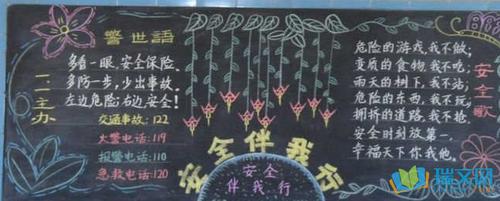 警世語
多看一眼,安全保险.
多防一步,少出事故.
左边危险;右边,安全!
交通事故:122
火警电话:119
报警电话:110
急救电话:120
一一主办
安全伴我行
安全
伴我行
安全歌
危险的游戏,我不做;
变质的食物,我不吃;
雨天的树下,我不站;
危险的东西,我不玩,
拥挤的道路,我不抢.
安全时刻放第一,
幸福天下你我他.
瑞文网